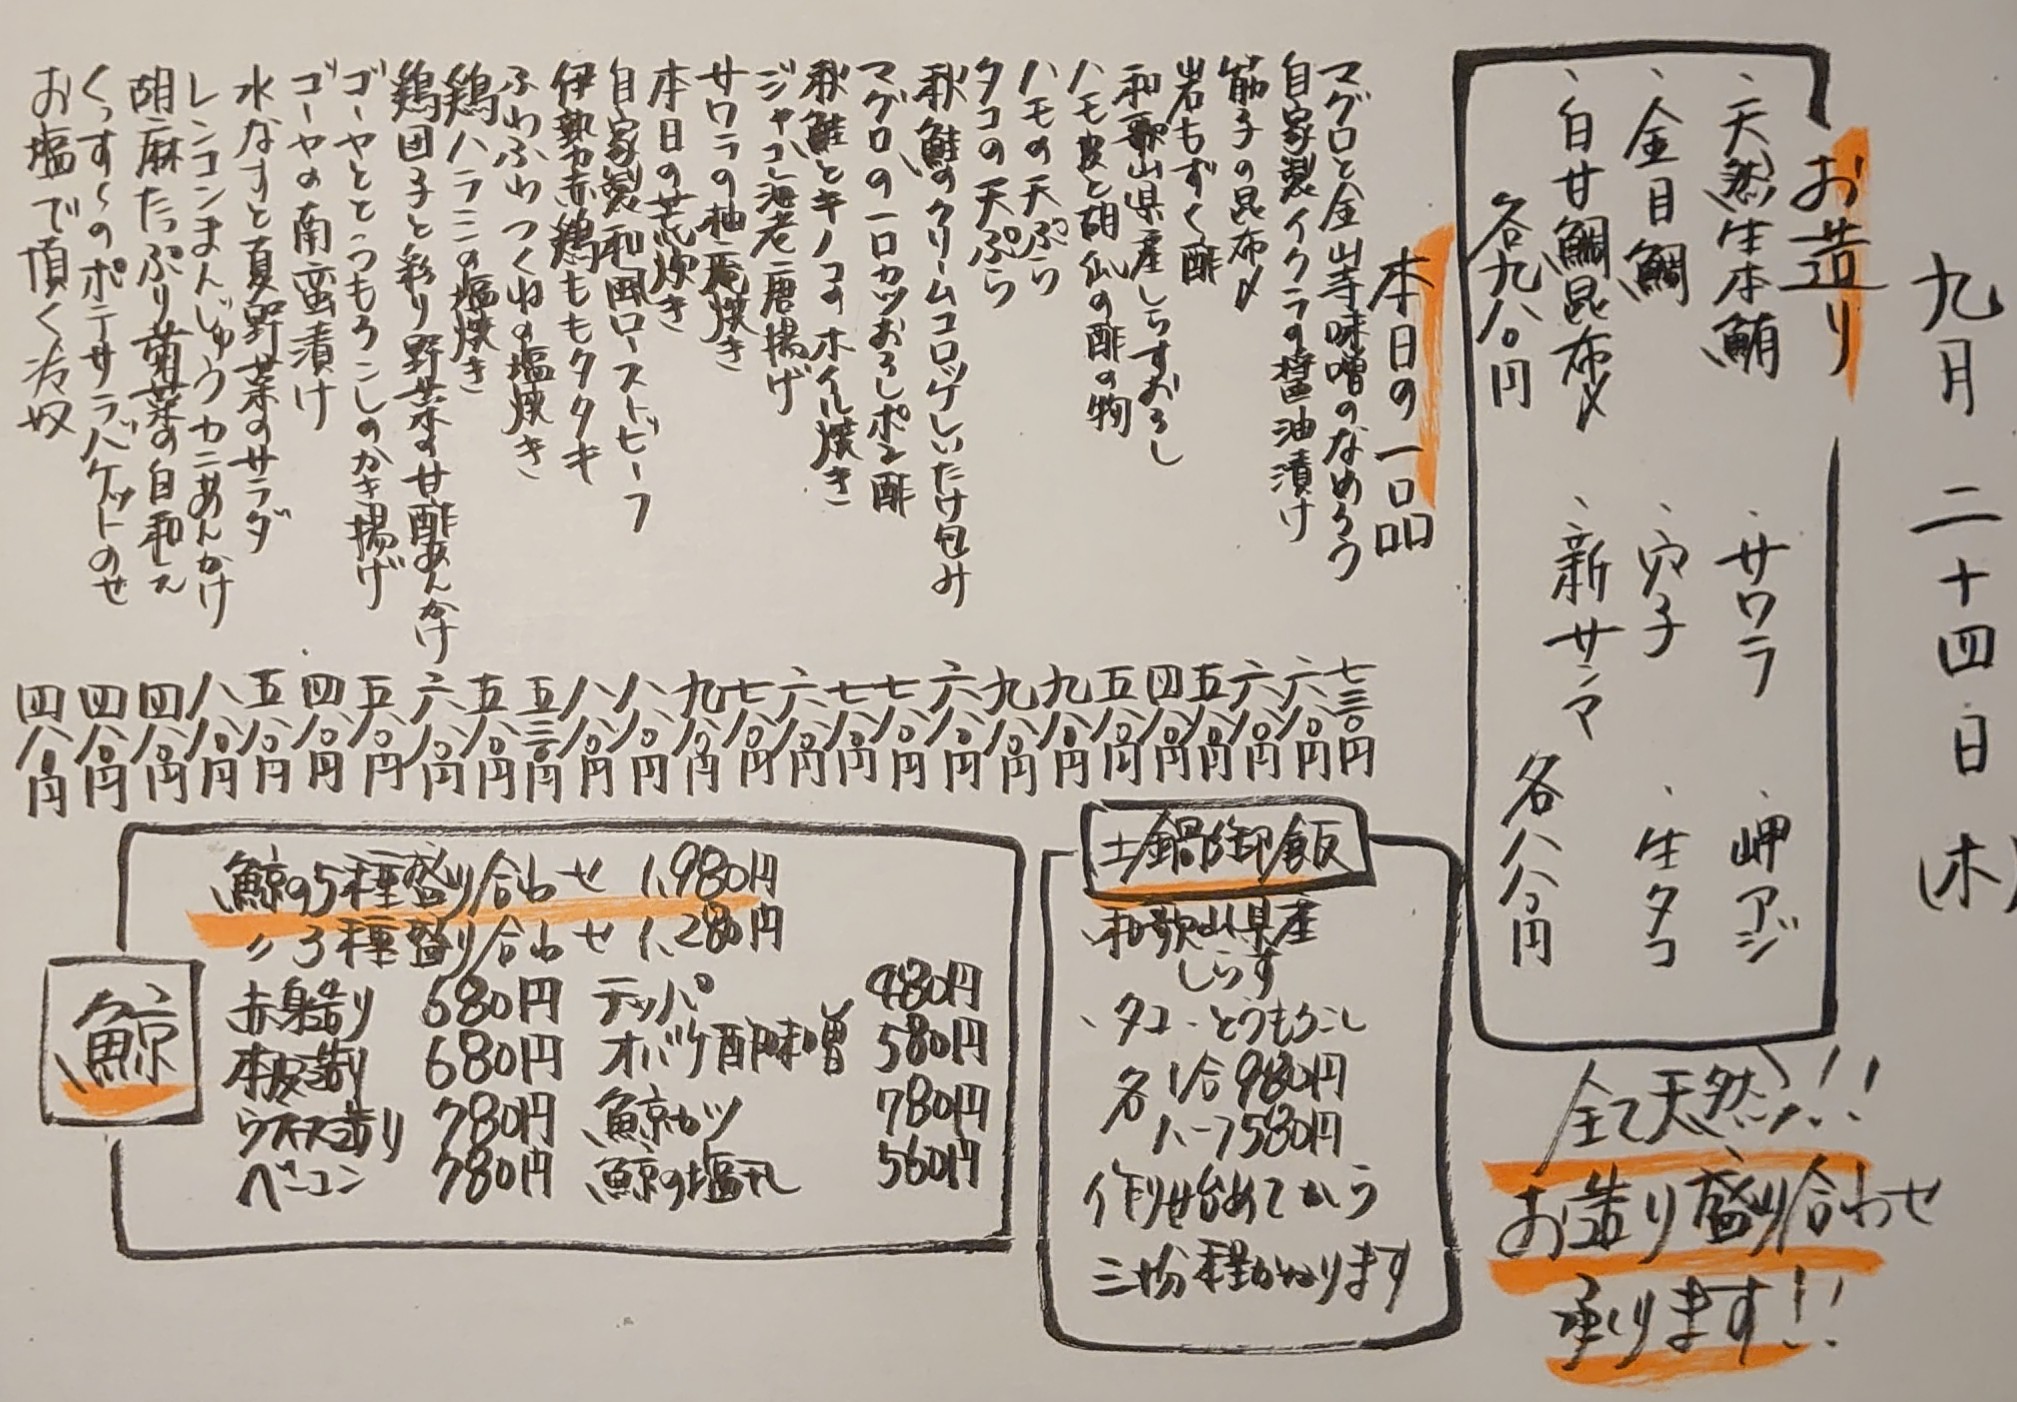 九月二十四日(木)
お造り
、天然生本鮪
、サワラ
、岬アジ
、金目鯛
、穴子
、生タコ
、白甘鯛昆布〆
、新サンマ
各九八〇円
各八八〇円
全て天然!!
お造り盛り合わせ
承ります!!
本日の一品
マグロと金山寺味噌のなめろう 七三〇円
自家製イクラの醤油漬け 六八〇円
筋子の昆布〆 六八〇円
岩もずく酢 五八〇円
和歌山県産しらすおろし 四八〇円
ハモ皮と胡瓜の酢の物 五八〇円
ハモの天ぷら 九八〇円
タコの天ぷら 九八〇円
秋鮭のクリームコロッケしいたけ包み 六八〇円
マグロの一口カツおろしポン酢 七八〇円
秋鮭とキノコのホイル焼き 七八〇円
ジャコ海老唐揚げ 六八〇円
サワラの柚庵焼き 七八〇円
本日の荒炊き 九八〇円
自家製和風ローストビーフ 八八〇円
伊勢赤鶏ももタタキ 八八〇円
ふわふわつくねの塩焼き 五三〇円
鶏ハラミの塩焼き 五八〇円
鶏団子と彩り野菜の甘酢あんかけ 六八〇円
ゴーヤととうもろこしのかき揚げ 五八〇円
ゴーヤの南蛮漬け 四八〇円
水なすと夏野菜のサラダ 五八〇円
レンコンまんじゅうカニあんかけ 八八〇円
胡麻たっぷり菊菜の白和え 四八〇円
くっす〜のポテサラバケットのせ 四八〇円
お塩で頂く冷奴 四八〇円
土鍋御飯
和歌山県産
しらす
、タコ、とうもろこし
各 1合 980円
ハーフ 580円
作り始めてから
三十分程かかります
鯨
鯨の5種盛り合わせ 1,980円
〃3種盛り合わせ 1,280円
赤身造り 680円
本皮造り 680円
ウネス造り 780円
ベーコン 780円
テッパ 480円
オバケ酢味噌 580円
鯨カツ 780円
鯨の塩 560円